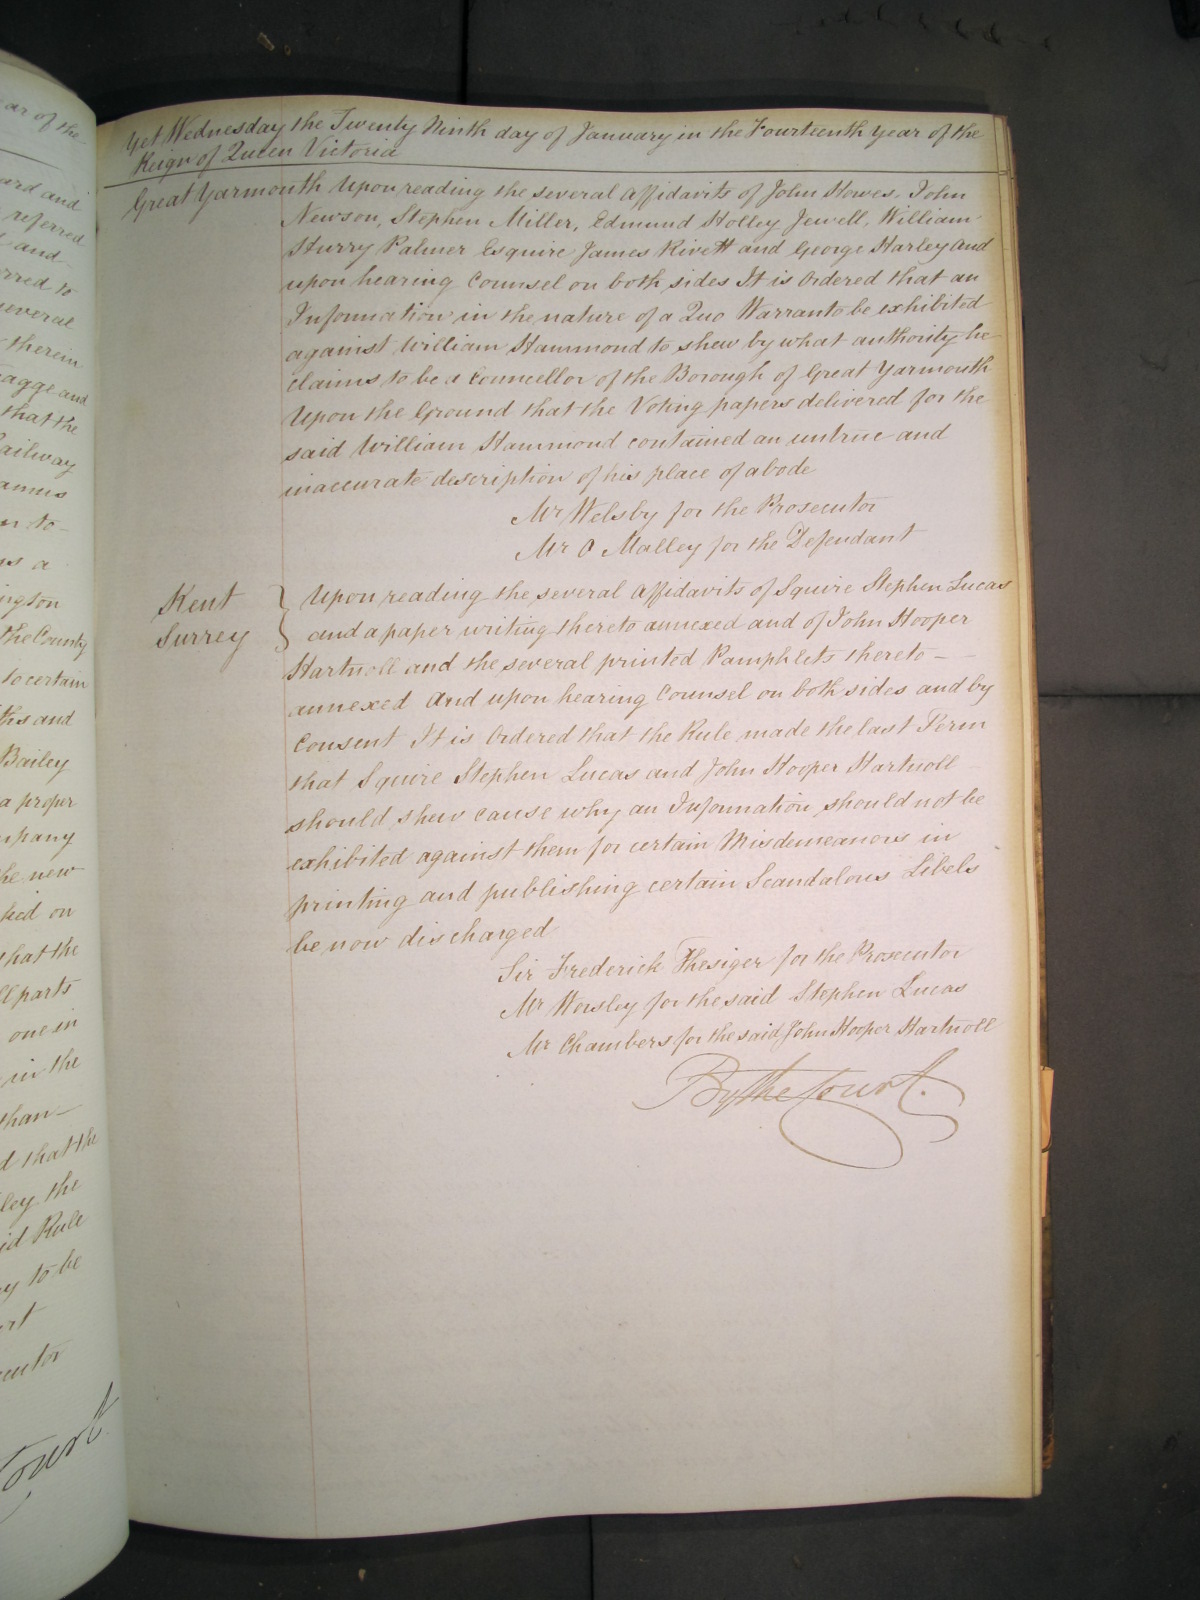 ear of the
ard and
referred
and
rred to
several
therein
agge and
that the
Railway
n to
as a
ington
the County
to certain
ths and
Bailey
a proper
mpany
he new
ked on
that the
ll parts
one in
in the
than
d that the
ley the
id Rule
y to be
rt
cutor
Court
Yet Wednesday the Twenty Ninth day of January in the Fourteenth Year of the
Reign of Queen Victoria
Great Yarmouth Upon reading the several Affidavits of John Howes, John
Newson, Stephen Miller, Edmund Holley Jewell, William
Hurry Palmer Esquire James Rivett and George Harley and
upon hearing Counsel on both sides It is Ordered that an
Information in the nature of a Quo Warranto be exhibited
against William Hammond to shew by what authority he
claims to be a Councellor of the Borough of Great Yarmouth
Upon the Ground that the Voting papers delivered for the
said William Hammond contained an untrue and
inaccurate description of his place of abode
Mr Welsby for the Prosecutor
Mr O Malley for the Defendant
Kent
Surrey
} Upon reading the several Affidavits of Squire Stephen Lucas
and a paper writing thereto annexed and of John Hooper
Hartnoll and the several printed Pamphlets thereto —
annexed And upon hearing Counsel on both sides and by
Consent It is Ordered that the Rule made the last Term
that Squire Stephen Lucas and John Hooper Hartnoll
should shew cause why an Information should not be
exhibited against them for certain Misdemeanors in
printing and publishing certain Scandalous Libels
be now discharged
Sir Frederick Thesiger for the Prosecutor
Mr Worsley for the said Stephen Lucas
Mr Chambers for the said John Hooper Hartnoll
By the Court.